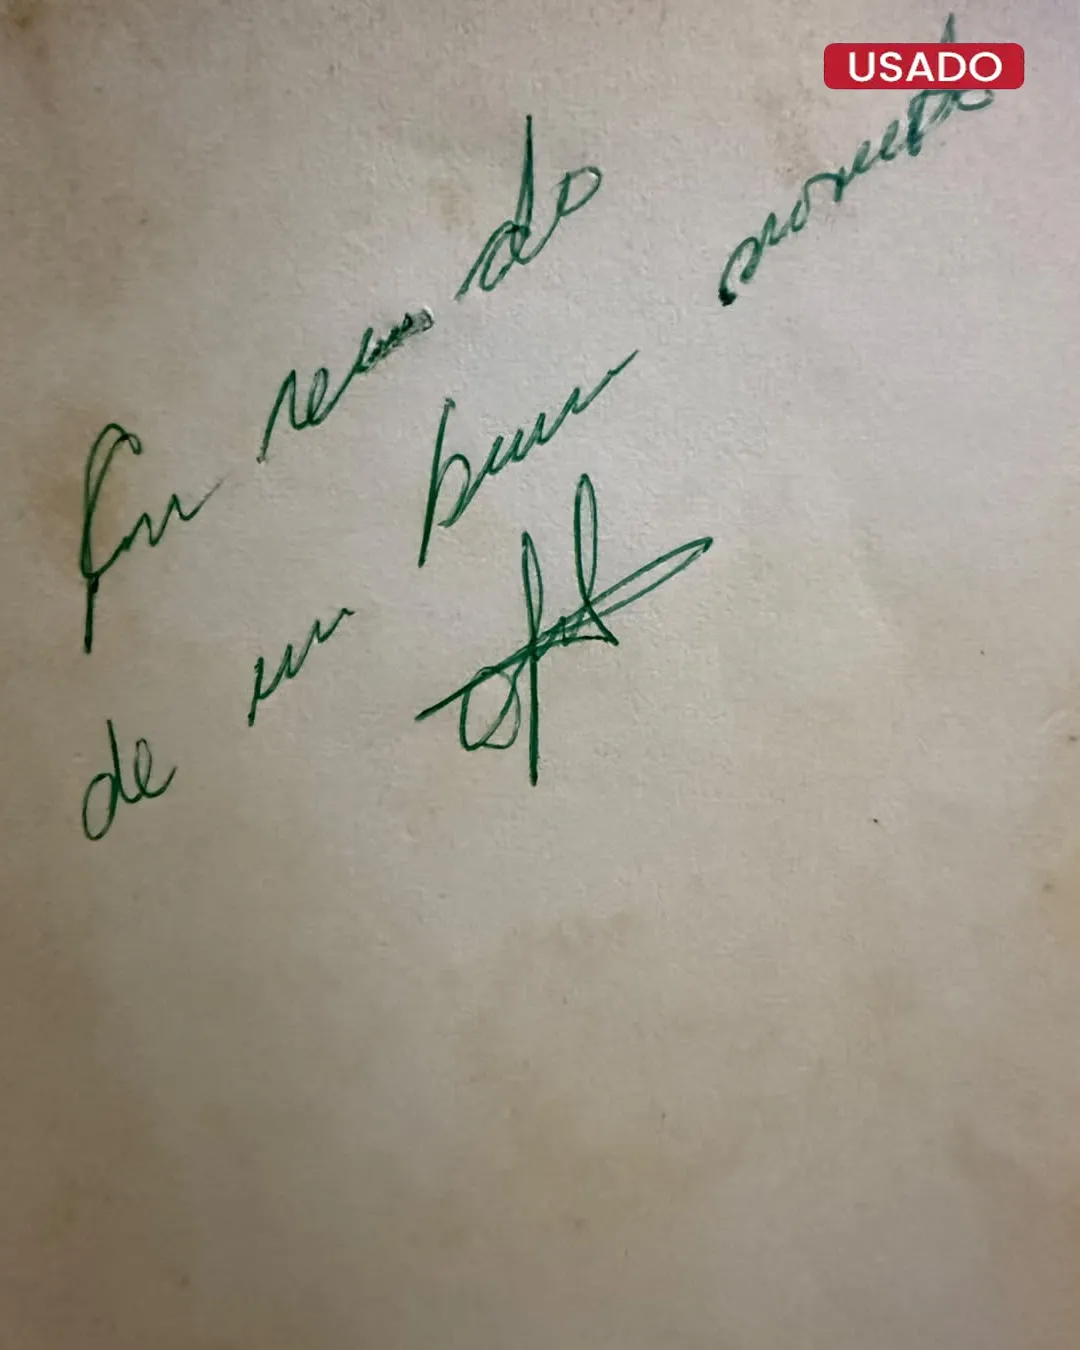 USADO
En recuerdo
de un buen momento